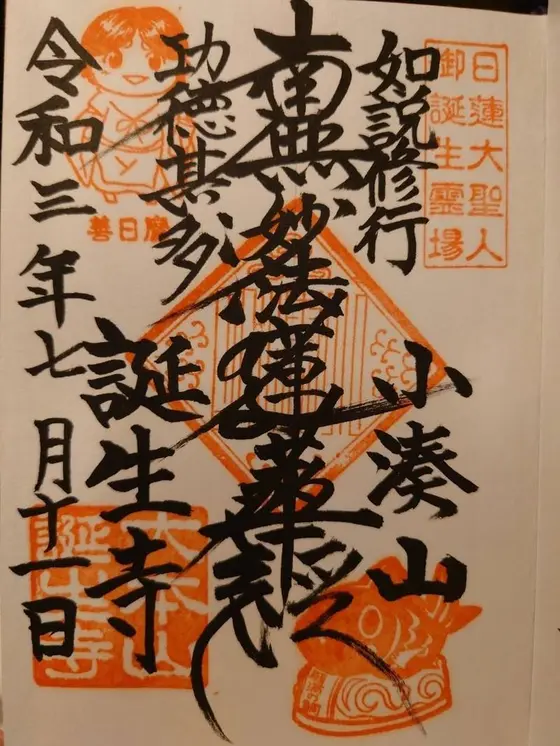 日蓮大聖人
御誕生霊場
如説修行
小湊山
南無妙法蓮華経
功徳甚多
誕生寺
令和三年七月十一日
善日麿
大本山
誕生寺